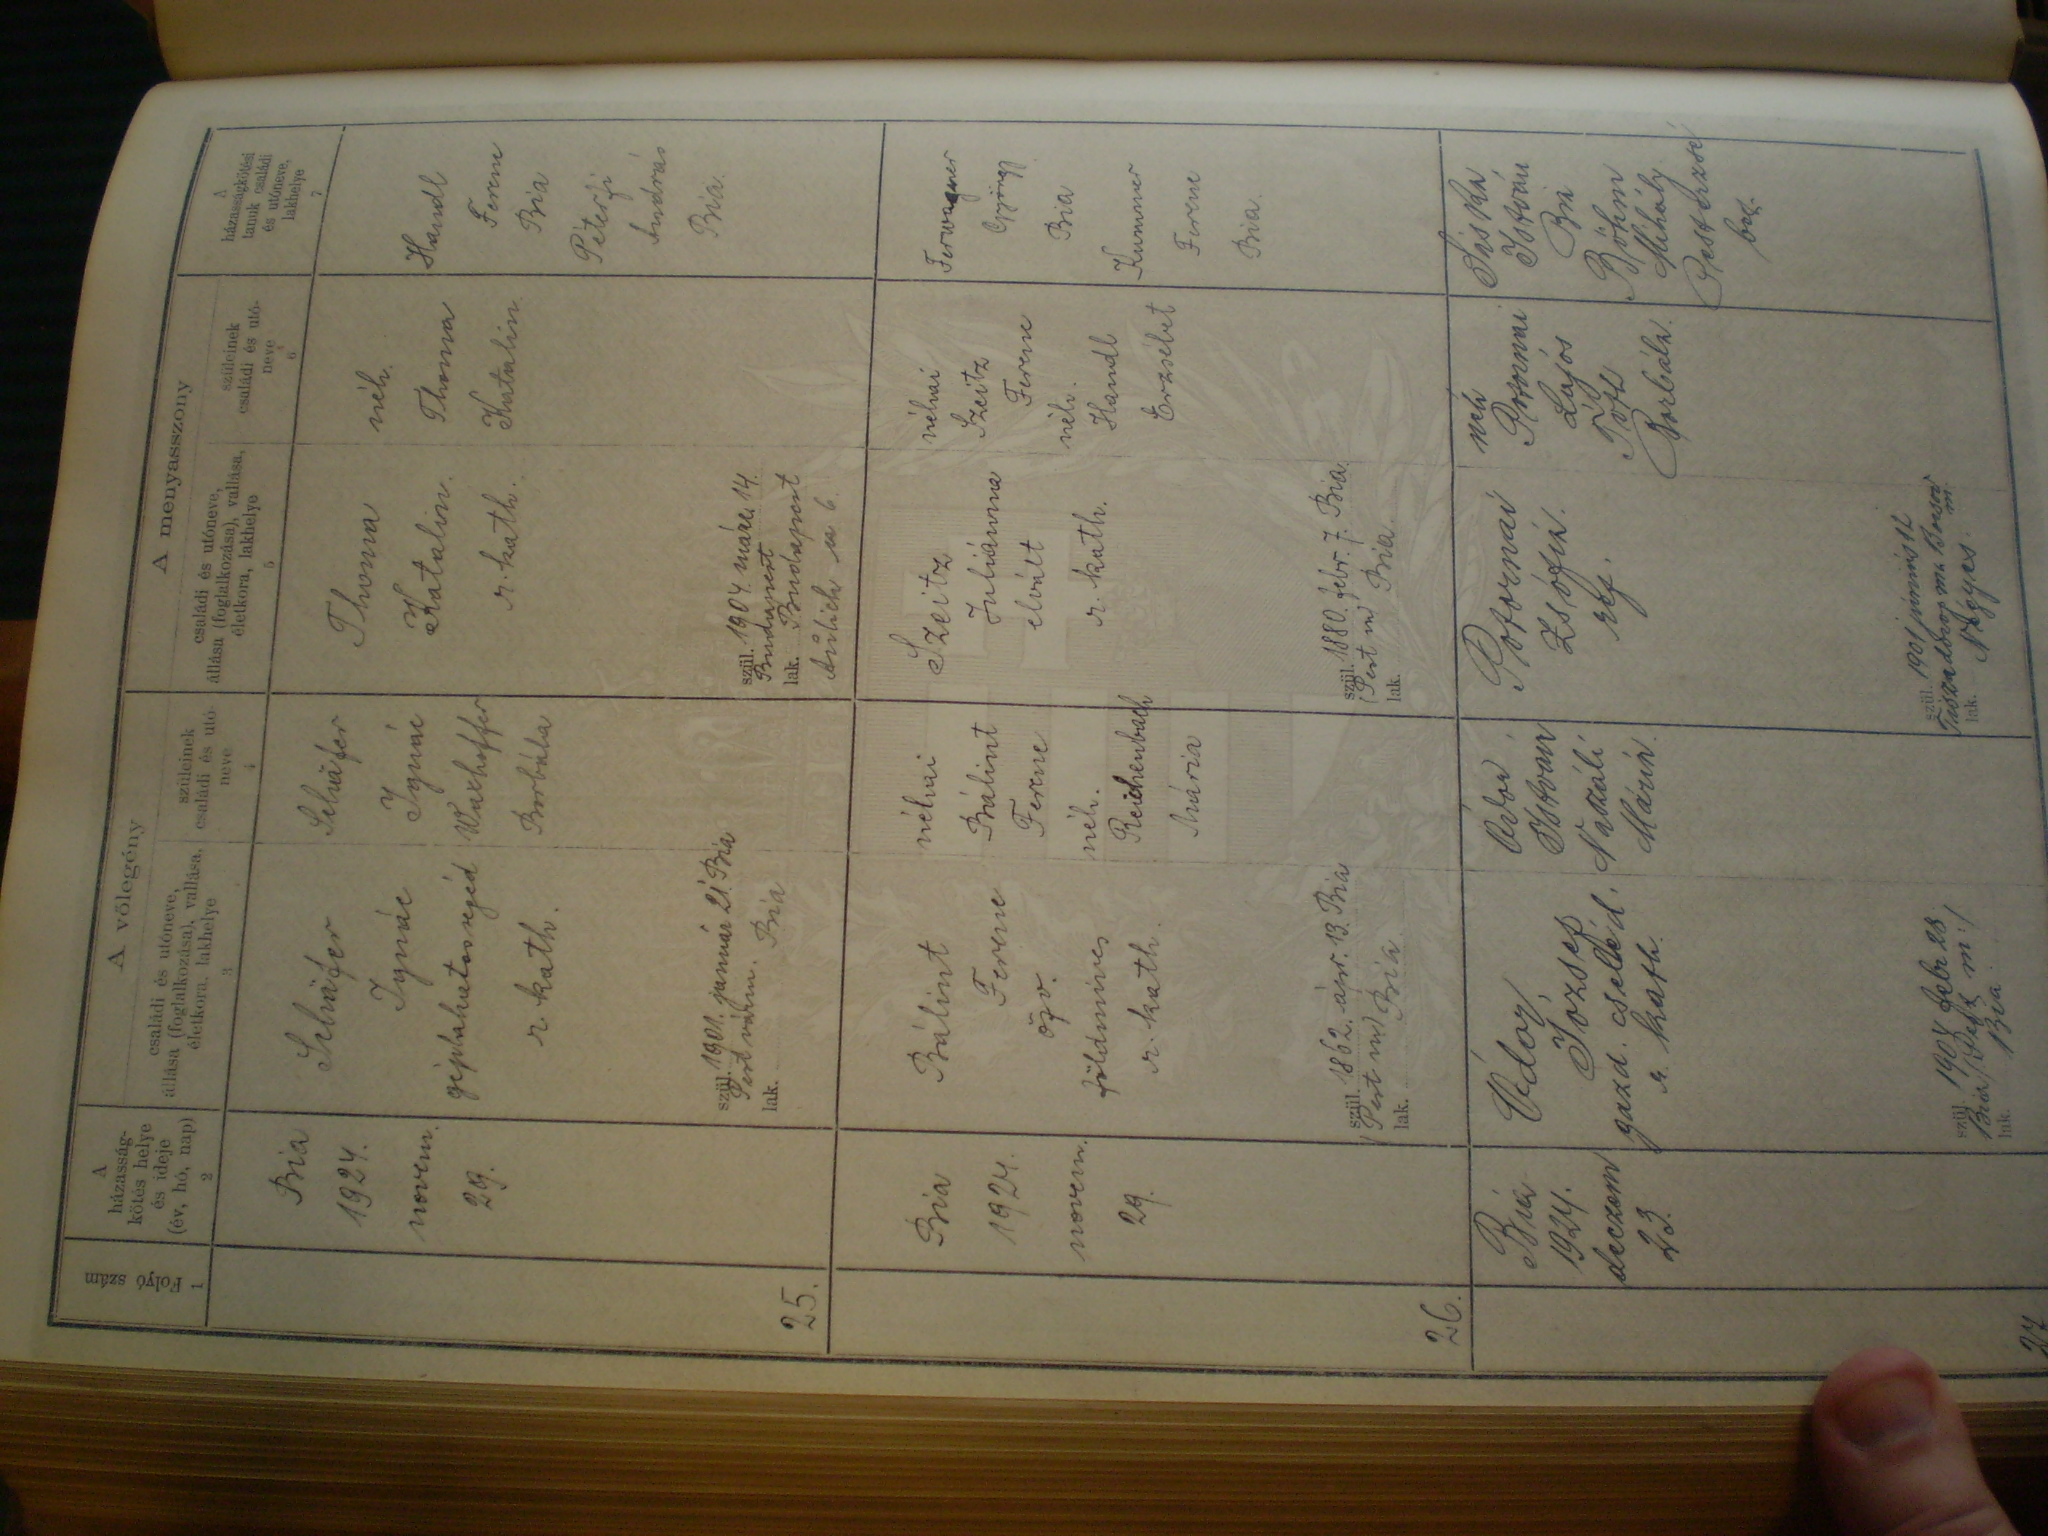 A vőlegény
A menyasszony
1
Folyó szám
A
házasság-
kötés helye
és ideje
(év, hó, nap)
2
családi és utóneve,
állása (foglalkozása), vallása,
életkora, lakhelye
3
szüleinek
családi és utó-
neve
4
családi és utóneve,
állása (foglalkozása), vallása,
életkora, lakhelye
5
szüleinek
családi és utó-
neve
6
A
házasságkötési
tanuk családi
és utóneve,
lakhelye
7
25.
Bia
1924.
novem.
29.
Schäfer
Ignác
géplakatossegéd
r. kath.
szül. 1901. január 21. Bia
Pest várm.
lak. Bia
Schäfer
Ignác
Waxhoffer
Borbála
Thoma
Katalin.
r. kath.
szül. 1904. márc. 14.
Budapest
lak. Budapest
néh.
Thoma
Katalin.
Handl
Ferenc
Bia
Péterfi
András
Bia.
26.
Bia
1924.
novem.
29.
Bálint
Ferenc
özv.
földmives
r. kath.
szül. 1862. ápr. 13. Bia
(Pest m)
lak. Bia
néhai
Bálint
Ferenc
néh.
Reichenbach
Mária
Szeitz
Juliánna
elvált
r. kath.
szül. 1880. febr. 7. Bia
(Pest m)
lak. Bia.
néhai
Szeitz
Ferenc
néh.
Handl
Erzsébet
Ferwagner
György
Bia
Kummer
Ferenc
Bia.
27
Bia
1924.
deczem
23.
József
gazd. cseléd.
r. kath.
szül. febr 28.
Bia (Pest m.)
lak. Bia
István
Mária.
Pozsonyi
Zsófia.
ref.
szül. 1901 junius 12
Borsod
m.
lak. Négyes.
néh
Lajos
Tóth
Borbála.
István
Bia
Böhm
Mihály
Pest